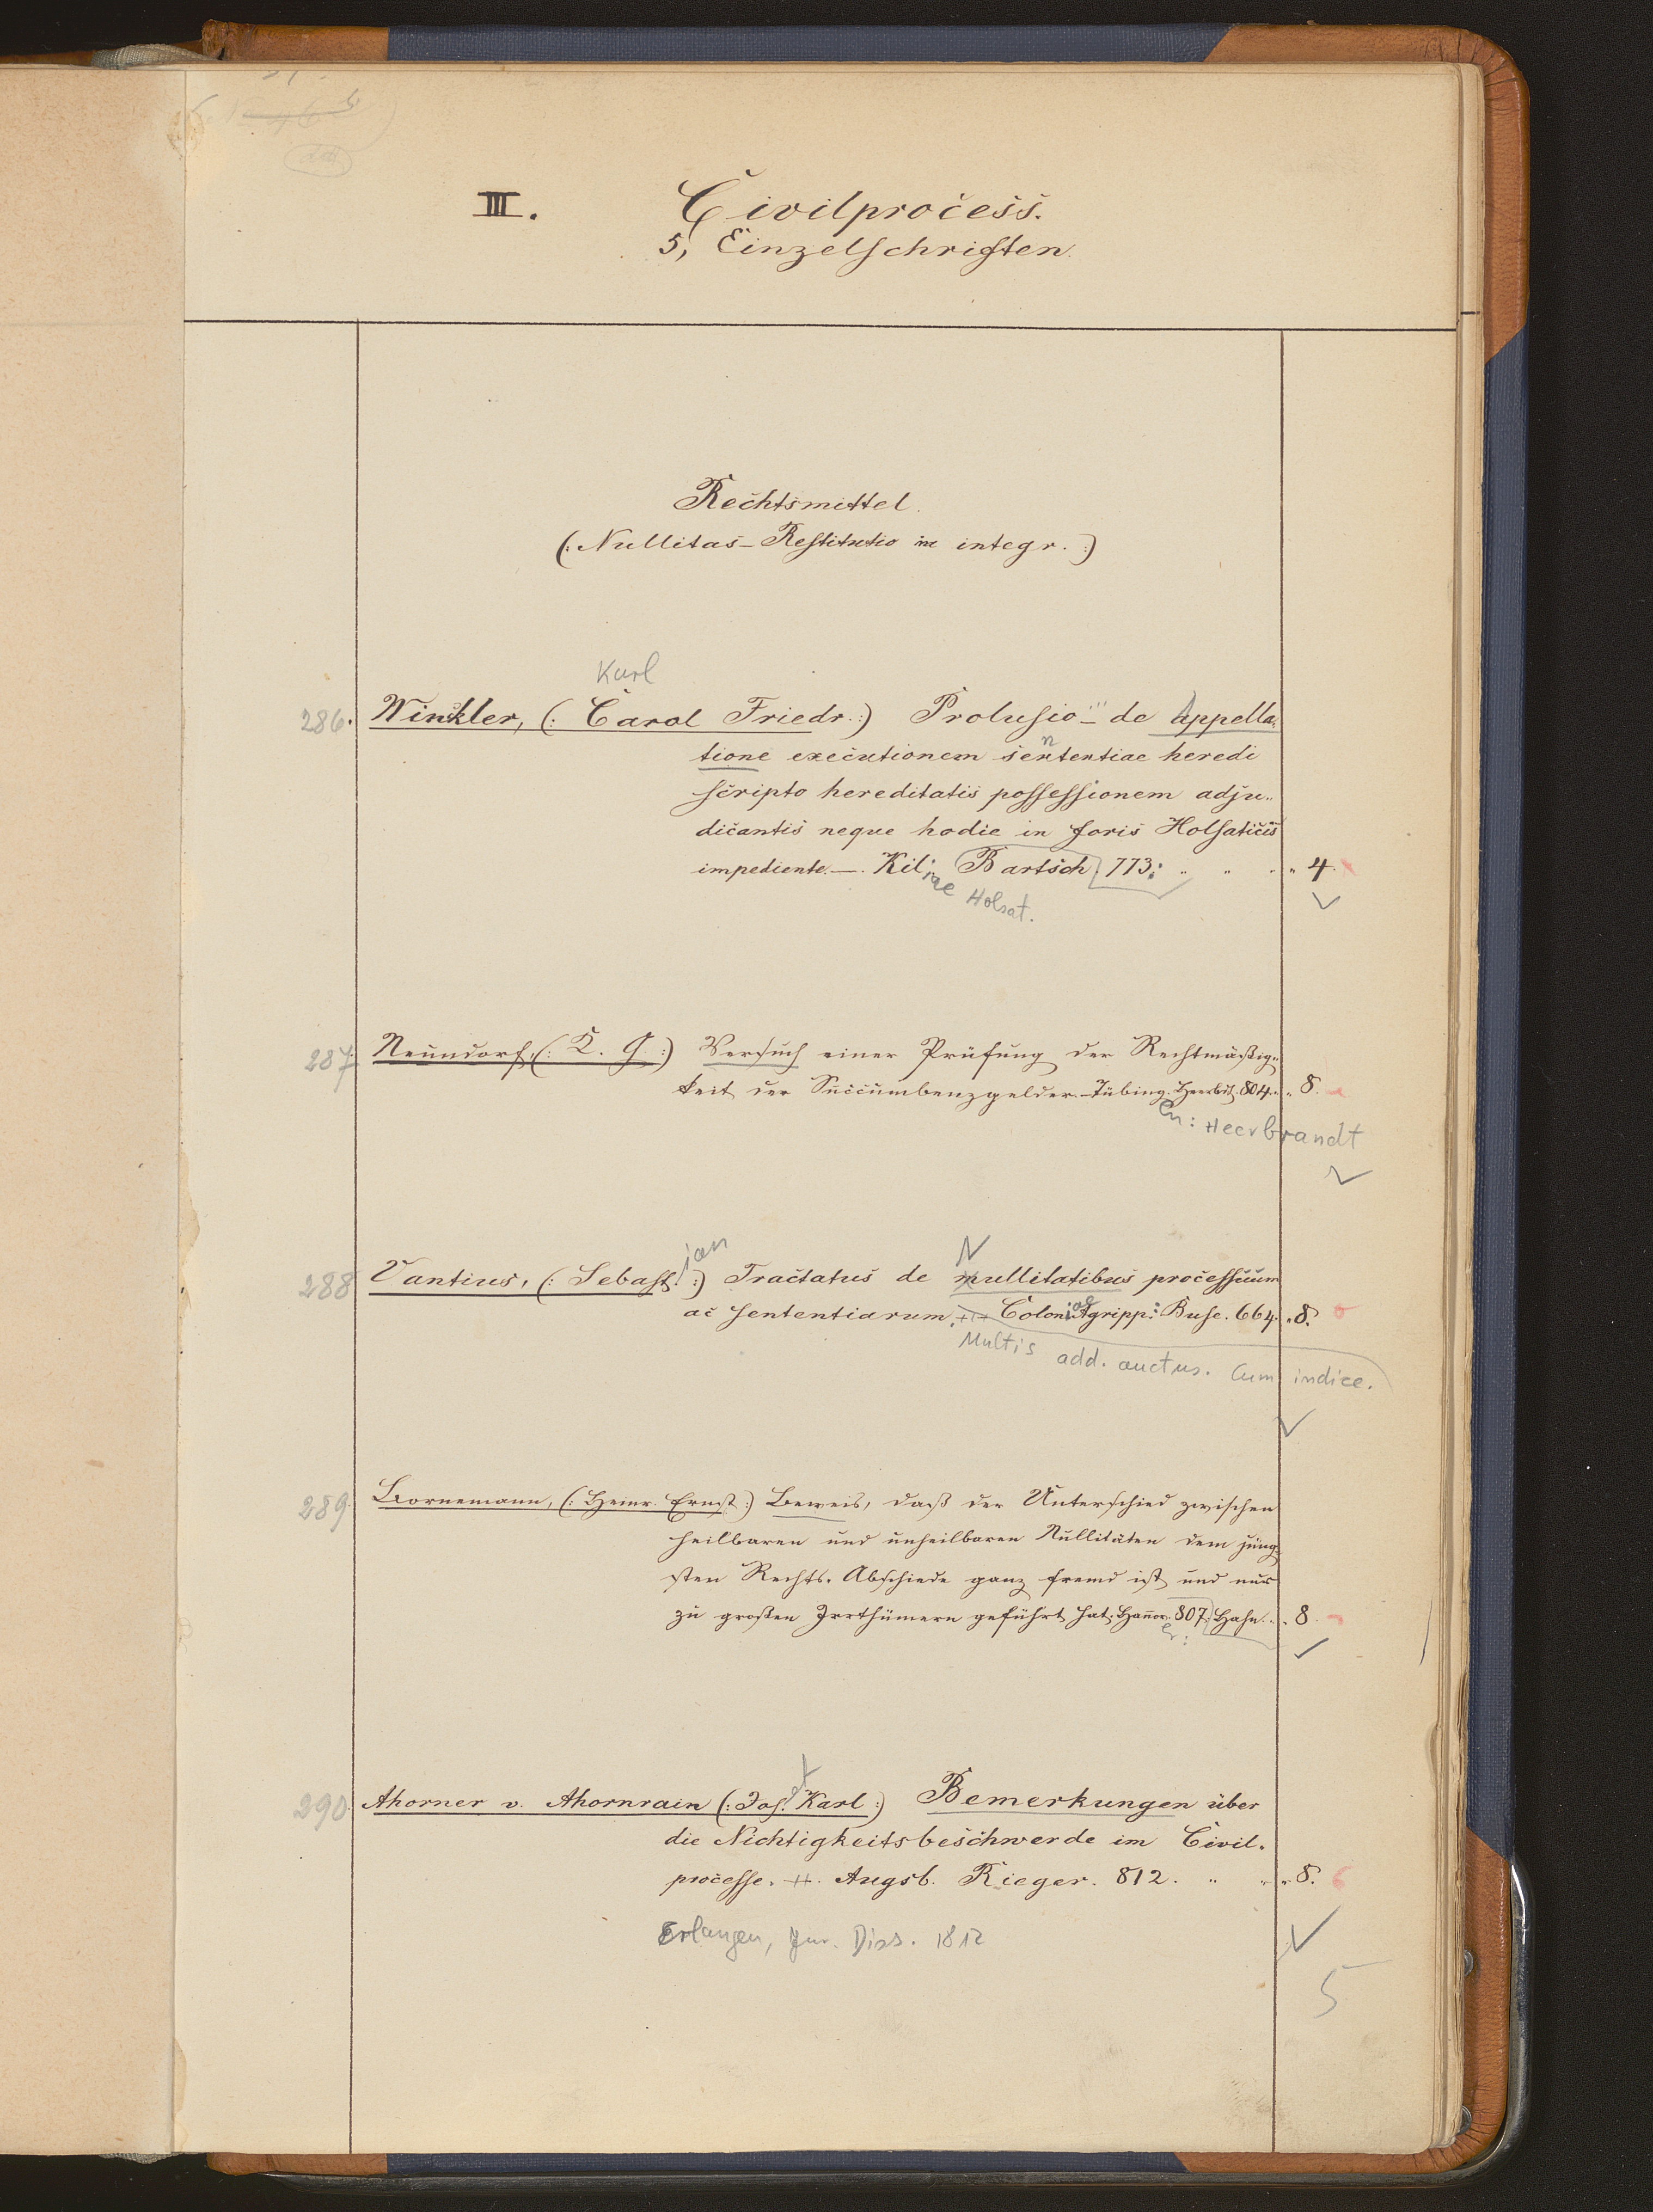 III. Civilprocess.
5, Einzelschriften.
Rechtsmittel.
(: Nullitas - Restitutio in integr. :)
Karl
286. Winkler, (: Carol Friedr. :) Prolusio - de Appella-
tione executionem sententiae heredi
scripto hereditatis possessionem adju-
dicantis neque hodie in foris Holsaticis
impediente. - Kil: Bartsch. 773. " " " 4.
iae Holsat.
287 Neundorf, (: K. G. :) Versuch einer Prüfung der Rechtmäßig-
keit der Succumbenzgelder. - Tübing. Heerbdt. 804. " 8.
en: Heerbrandt
ian N
288 Vantius, (: Sebast. :) Tractatus de nullitatibus processuum
ac sententiarum. Coloniae Agripp: Buse. 664. " 8.
Multis add. auctus. Cum indice.
289. Bornemann, (: Heinr. Ernst :) Beweis, daß der Unterschied zwischen
heilbaren und unheilbaren Nullitäten dem jüng-
sten Rechts-Abschiede ganz fremd ist und nur
zu großen Irrthümern geführt hat. Hannov. 807. Hahn. " 8.
er:
290. Ahorner v. Ahornrain (: Jos. Karl :) Bemerkungen über
die Nichtigkeitsbeschwerde im Civil-
processe. Augsb. Rieger. 812. " " 8.
Erlangen, Jur. Diss. 1812
5